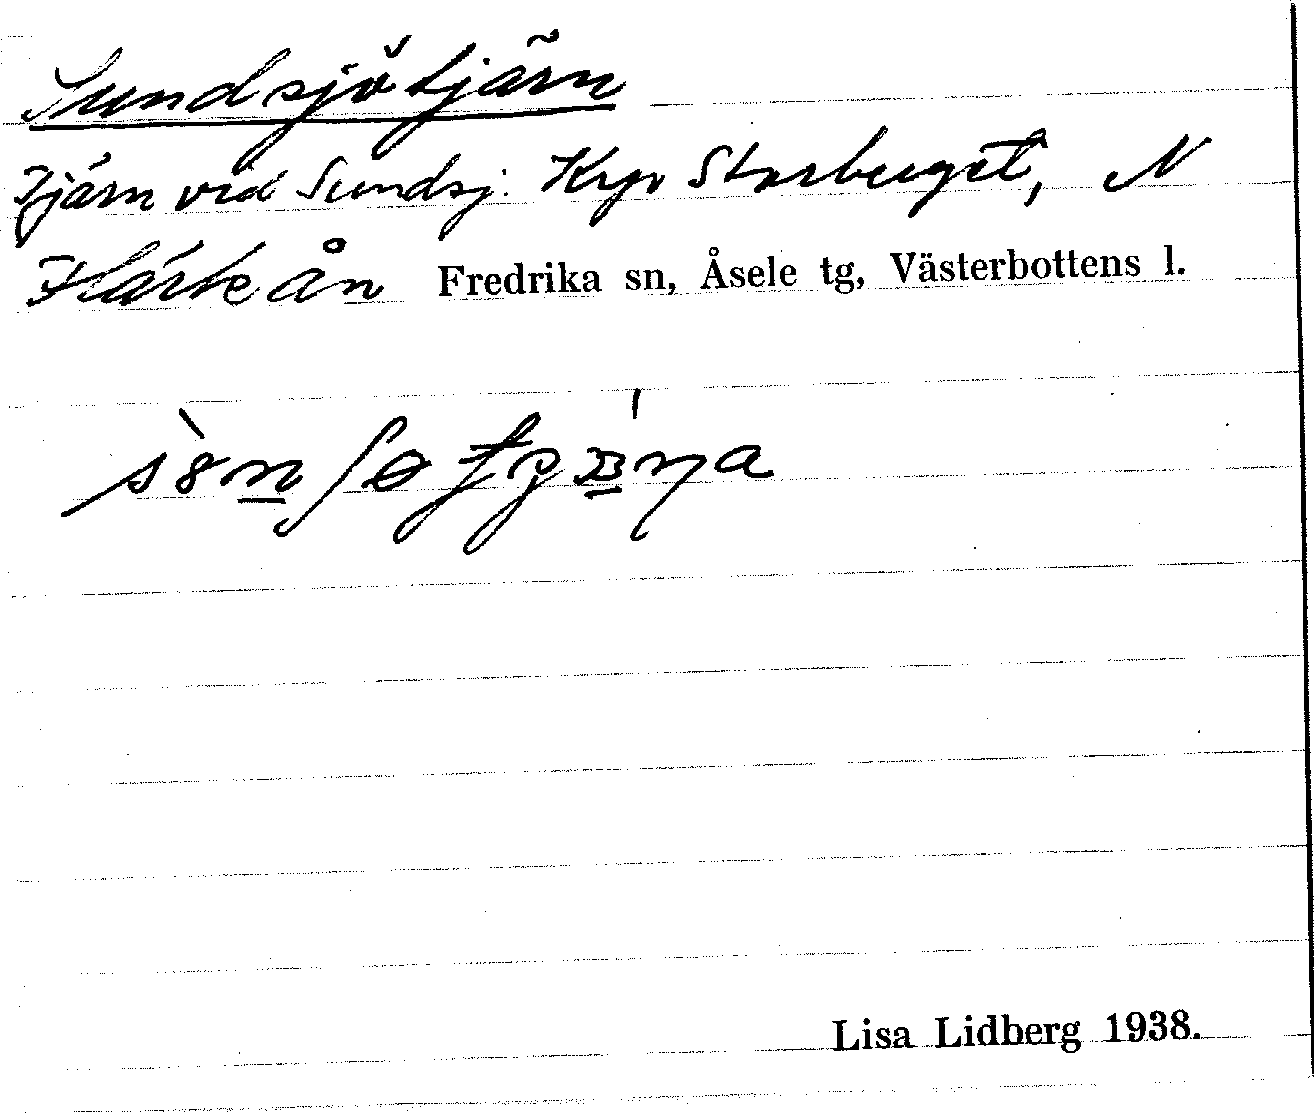 Sundsjötjärn
Tjärn vid Sundsj. Krpv Storberget, N
Flärkeån Fredrika sn, Åsele tg, Västerbottens l.
Lisa Lidberg 1938.